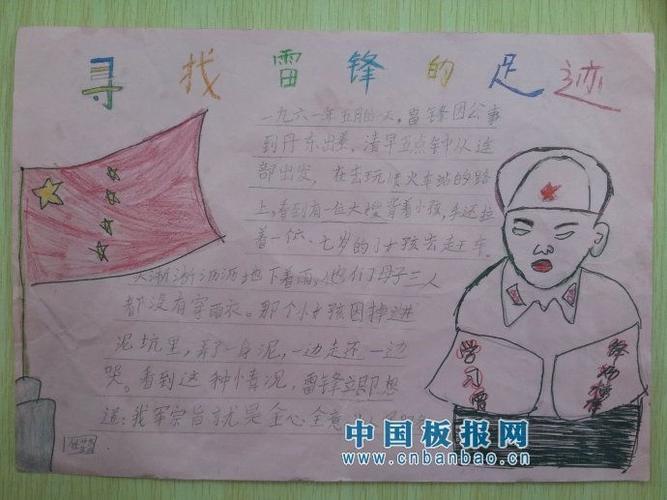 寻找雷锋的足迹
一九六一年五月的一天，雷锋因公事
到丹东出差，清早五点钟从连
部出发，在去抚顺火车站的路
上，看到有一位大嫂背着小孩，手还拉
着一个六、七岁的小女孩去赶车。
天淅淅沥沥地下着雨，他们母子三人
都没有穿雨衣。那个小女孩因掉进
泥坑里，弄了一身泥，一边走还一边
哭。看到这种情况，雷锋立即想
道：我军宗旨就是全心全意
学习雷
锋
中国板报网
www.cnbanbao.cn